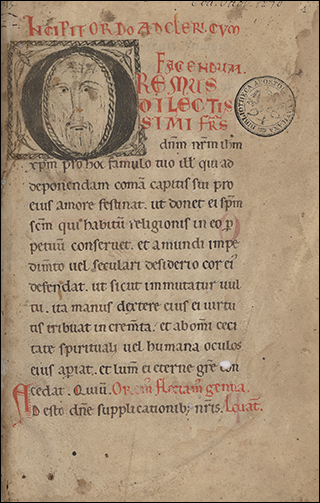 INCIPIT ORDO AD CLERICUM
FACIENDUM.
OREMUS
DILECTIS
SIMI FRS.
dnm nrm ihm
xpm pro hoc famulo tuo ill. qui ad
deponendam comā capitis sui pro
eius amore festinat. ut donet ei spm
scm qui habitū religionis in eo p
petuum conservet. et a mundi impe
dimto vel seculari desiderio cor ei'
defendat. ut sicut immutatur vul
tu. ita manus dextere eius ei virtu
tis tribuat incremta. et ab omi ceci
tate spirituali vel humana oculos
eius apiat. et lum ei eterne gre con
cedat. Q vivit. Orem. Flectam genua.
Adesto dne supplicationib; nris. Levat.